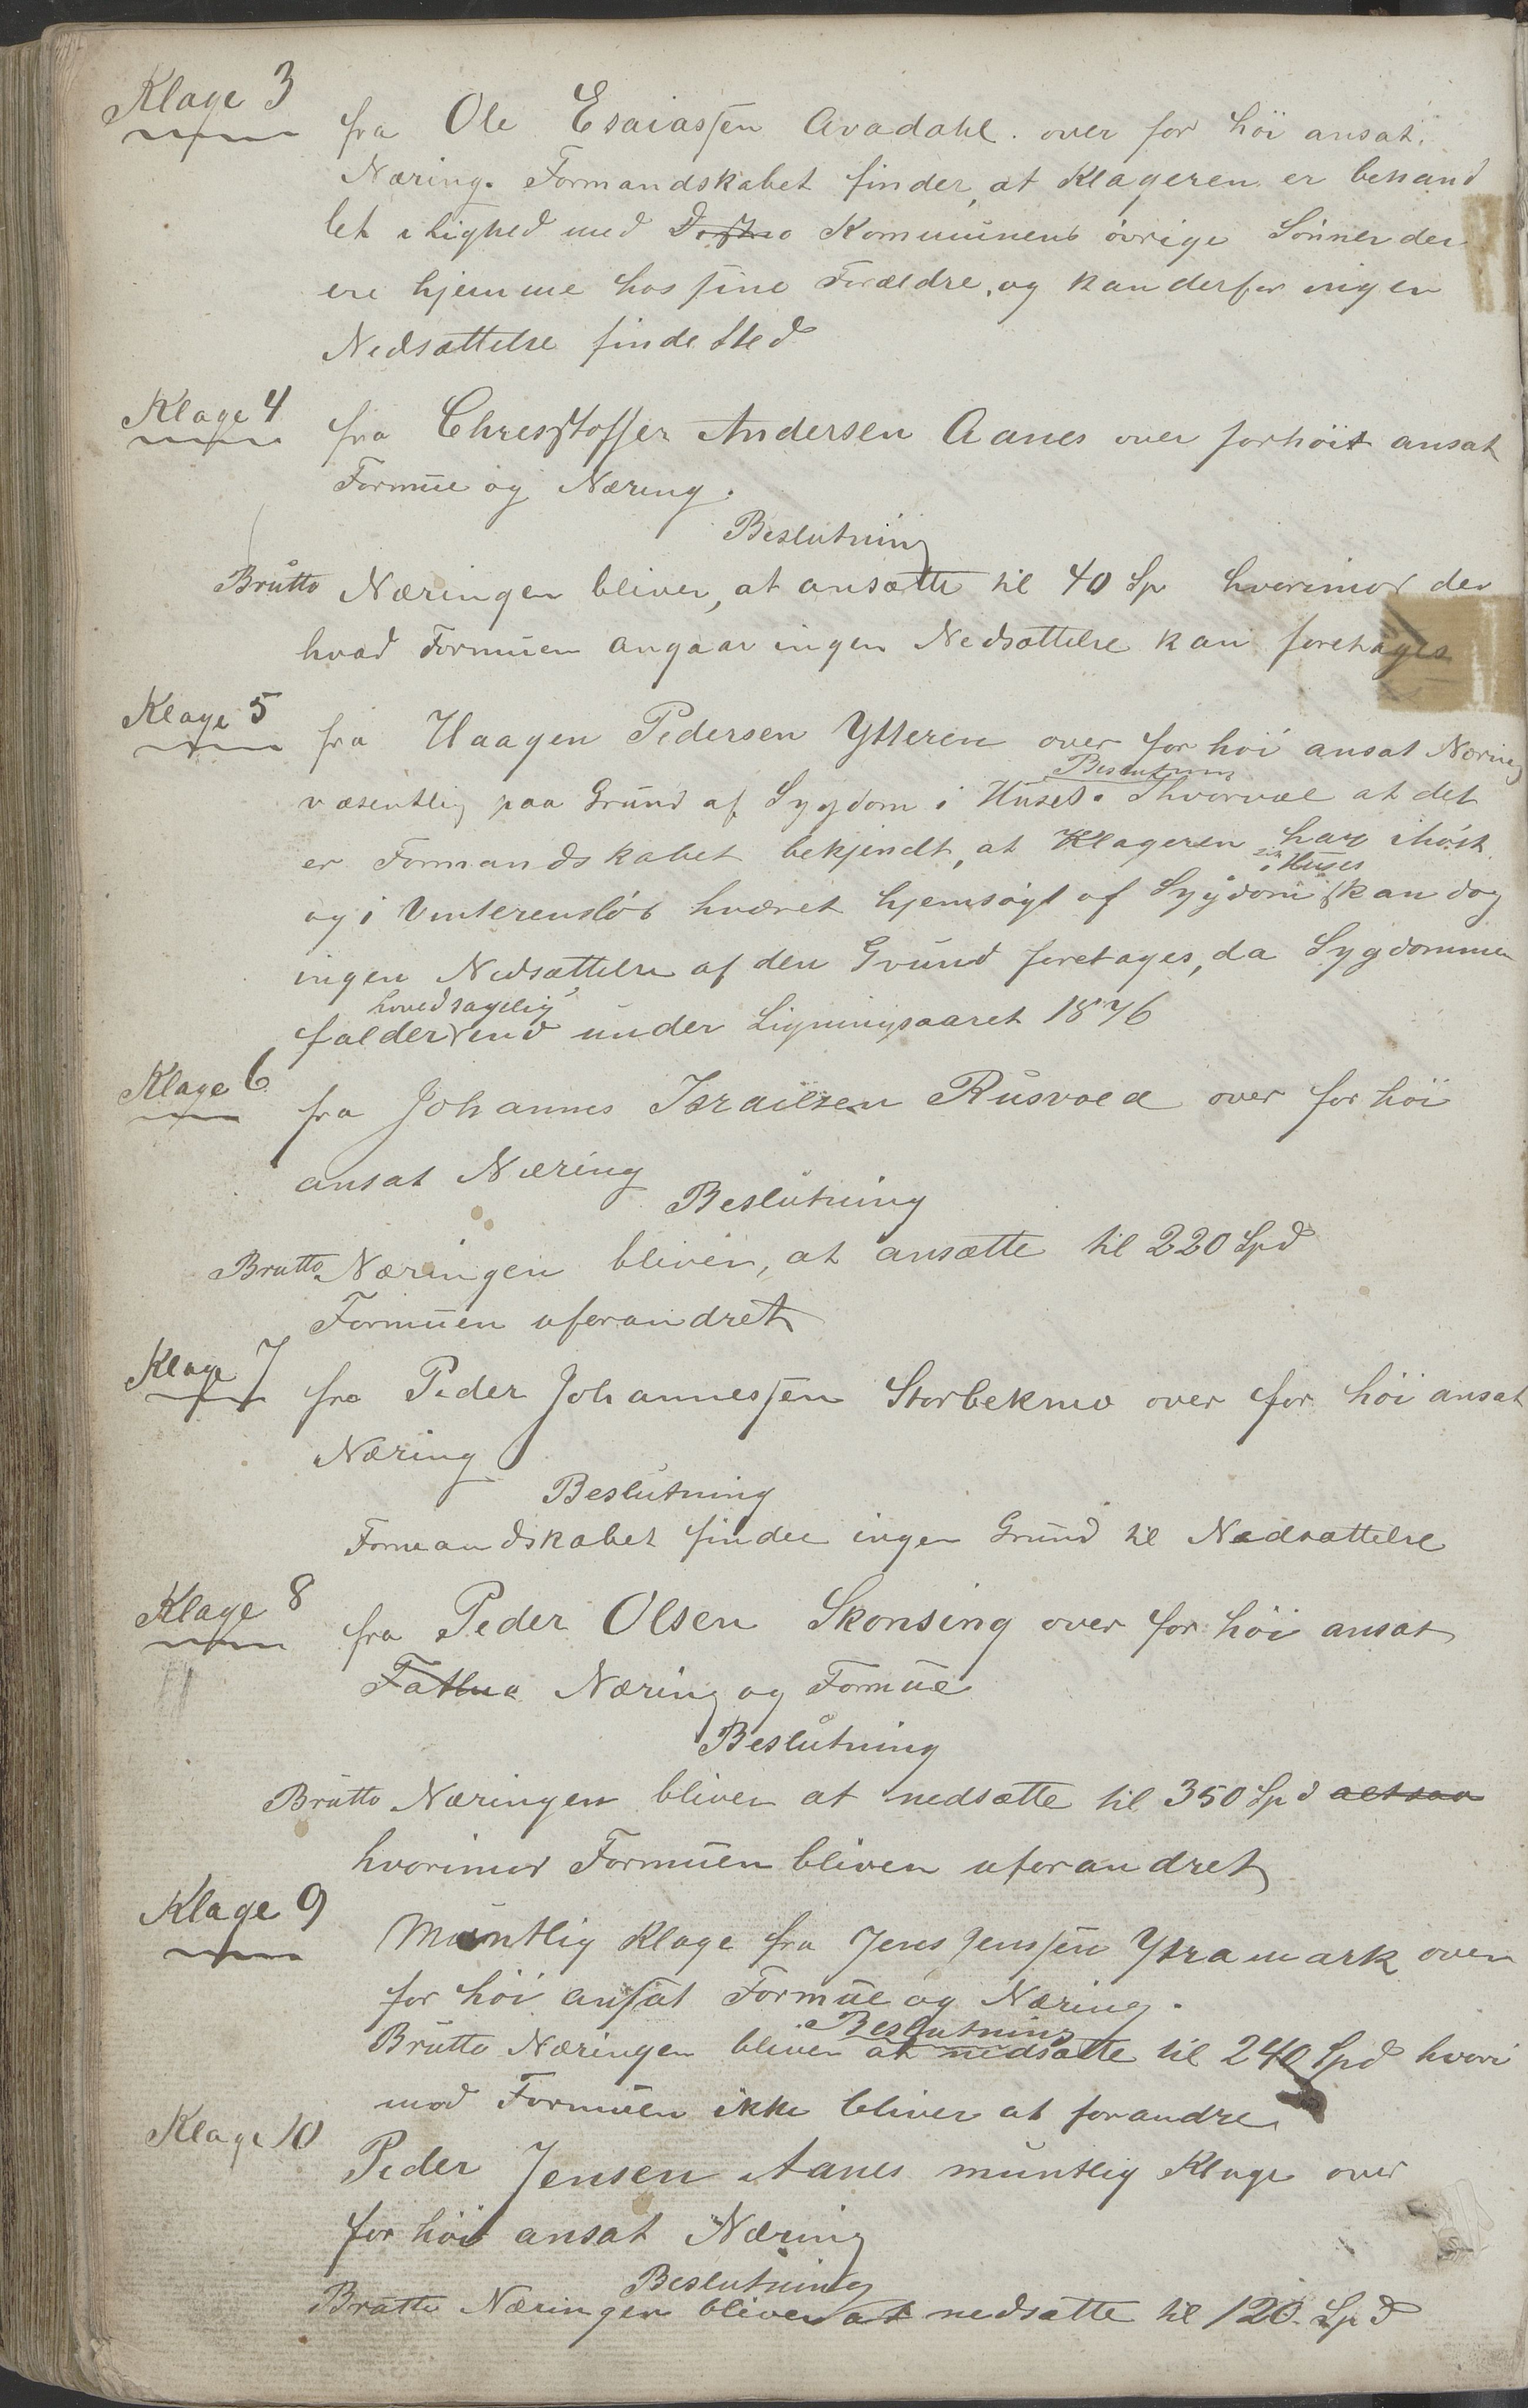 Klage 3
fra Ole Esaiassen Avadahl. over for höi ansat
Næring. Formandskabet finder, at Klageren er behand
let i lighed med Kommunens övrige Sönner der
ere hjemme hos sine Forældre, og kan derfor ingen
Nedsættelse finde Sted
Klage 4
fra Chrestoffer Andersen Aanes over forhöit ansat
Formue og Næring.
Beslutning
Brutto Næringen bliver, at ansætte til 40 Sp hvorimod der
hvad Formuen angaar ingen Nedsættelse kan foretages
Klage 5
fra Haagen Pedersen Ytteren over for höi ansat Næring
Beslutning
væsentlig paa Grund af Sygdom i Huset. Ihvorvæl at det
er Formandskabet bekjendt, at Klageren har ihöst
i Huset
og i Vinterenslöb hværet hjemsögt af Sygdom kan dog
ingen Nedsættelse af den Grund foretages, da Sygdommen
hovedsagelig
falder ind under Ligningsaaret 1876
Klage 6
fra Johannes Israelsen Rusvold over for höi
ansat Næring
Beslutning
Brutto Næringen bliver, at ansætte til 220 Spd
Formuen uforandret
Klage 7
fra Peder Johannessen Storbekmo over for höi ansat
Næring
Beslutning
Formandskabet finder ingen Grund til Nedsættelse
Klage 8
fra Peder Olsen Skonsing over for höi ansat
Næring og Formue
Beslutning
Brutto Næringen bliver at nedsætte til 350 Spd altsaa
hvorimod Formuen bliver uforandret
Klage 9
Muntlig Klage fra Jens Jenssen Ytramark over
for höi ansat Formue og Næring.
Beslutning
Brutto Næringen bliver at nedsætte til 240 Spd hvori
mod Formuen ikke bliver at forandre
Klage 10
Peder Jensen Aanes muntlig Klage over
for höit ansat Næring
Beslutning
Brutto Næringen bliver at nedsætte til 120 Spd